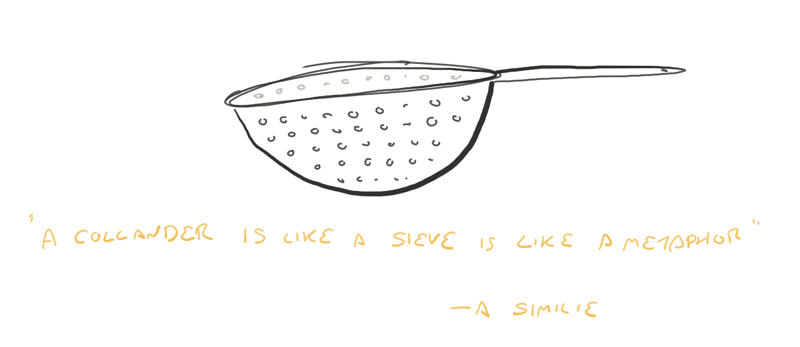 "A COLLANDER IS LIKE A SIEVE IS LIKE A METAPHOR"
—A SIMILIE